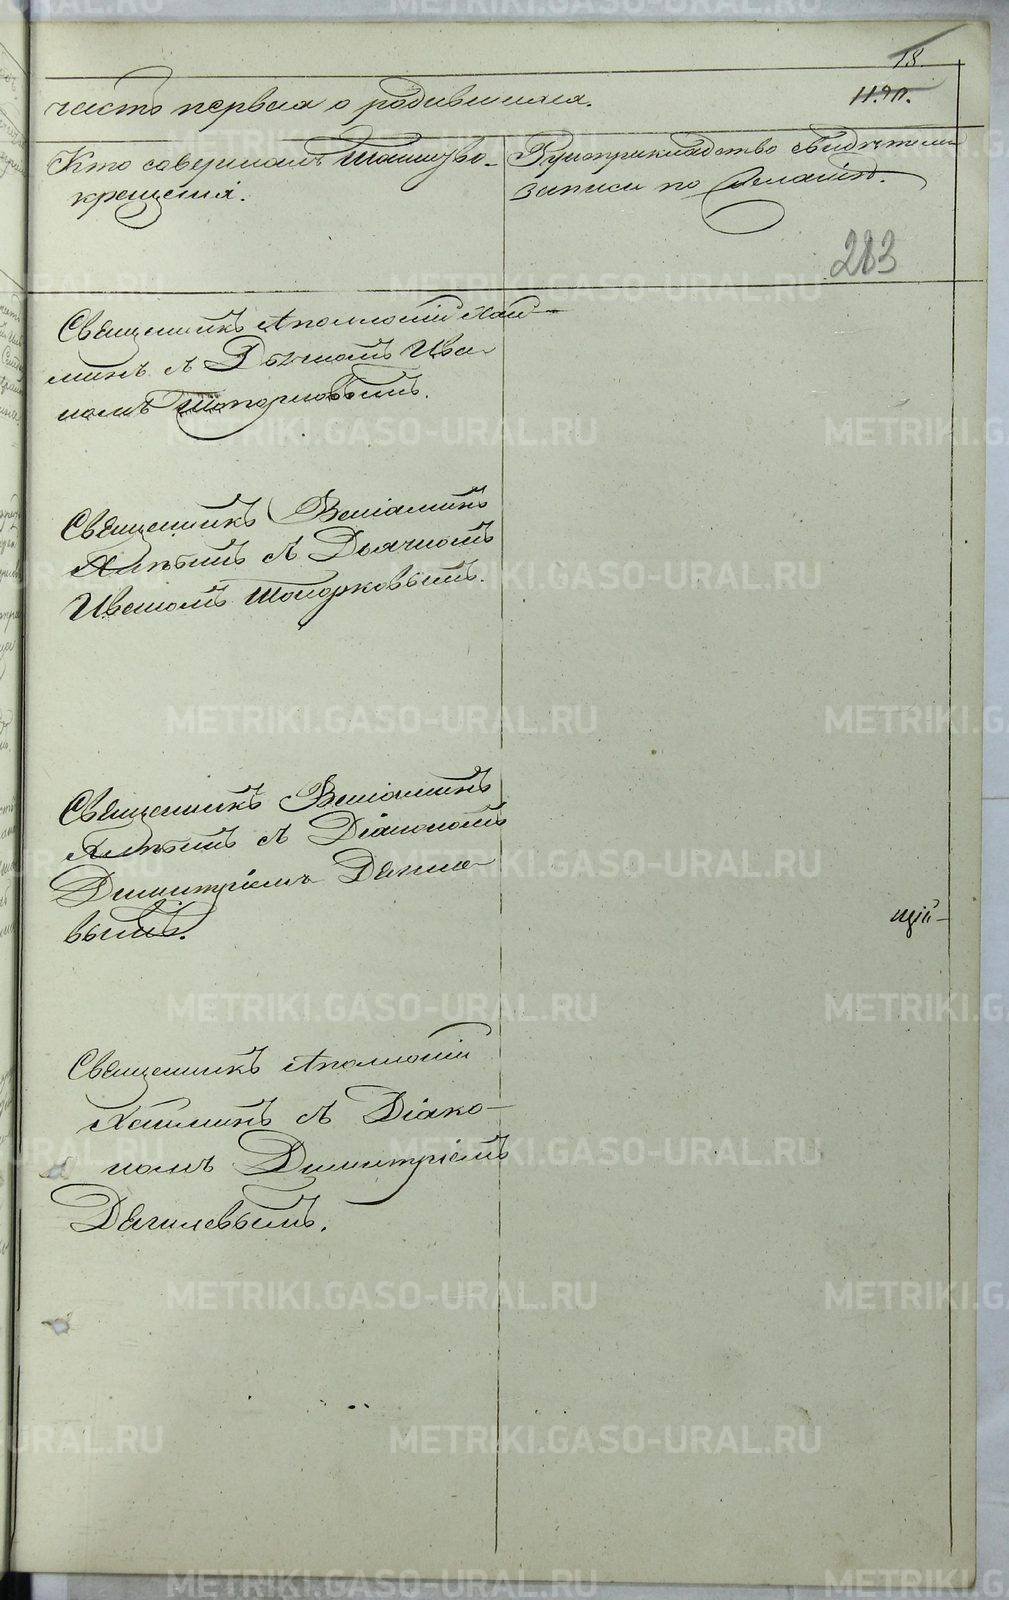 18.
11. 90.
часть первая о родившихся.
Кто совершалъ таинство
крещенія.
Рукоприкладство свидѣтелей
записи по желанію.
283
Священникъ Аполлоній Хай-
минъ съ Дьячкомъ Ива-
номъ Топорковымъ.
Священникъ Веніаминъ
съ Дьячкомъ
Иваномъ Топорковымъ.
Священникъ Веніаминъ
съ Діакономъ
Димитріемъ Дягиле-
вымъ.
щій-
Священникъ Аполлоній
Хайминъ съ Діако-
номъ Димитріемъ
Дягилевымъ.
METRIKI.GASO-URAL.RU